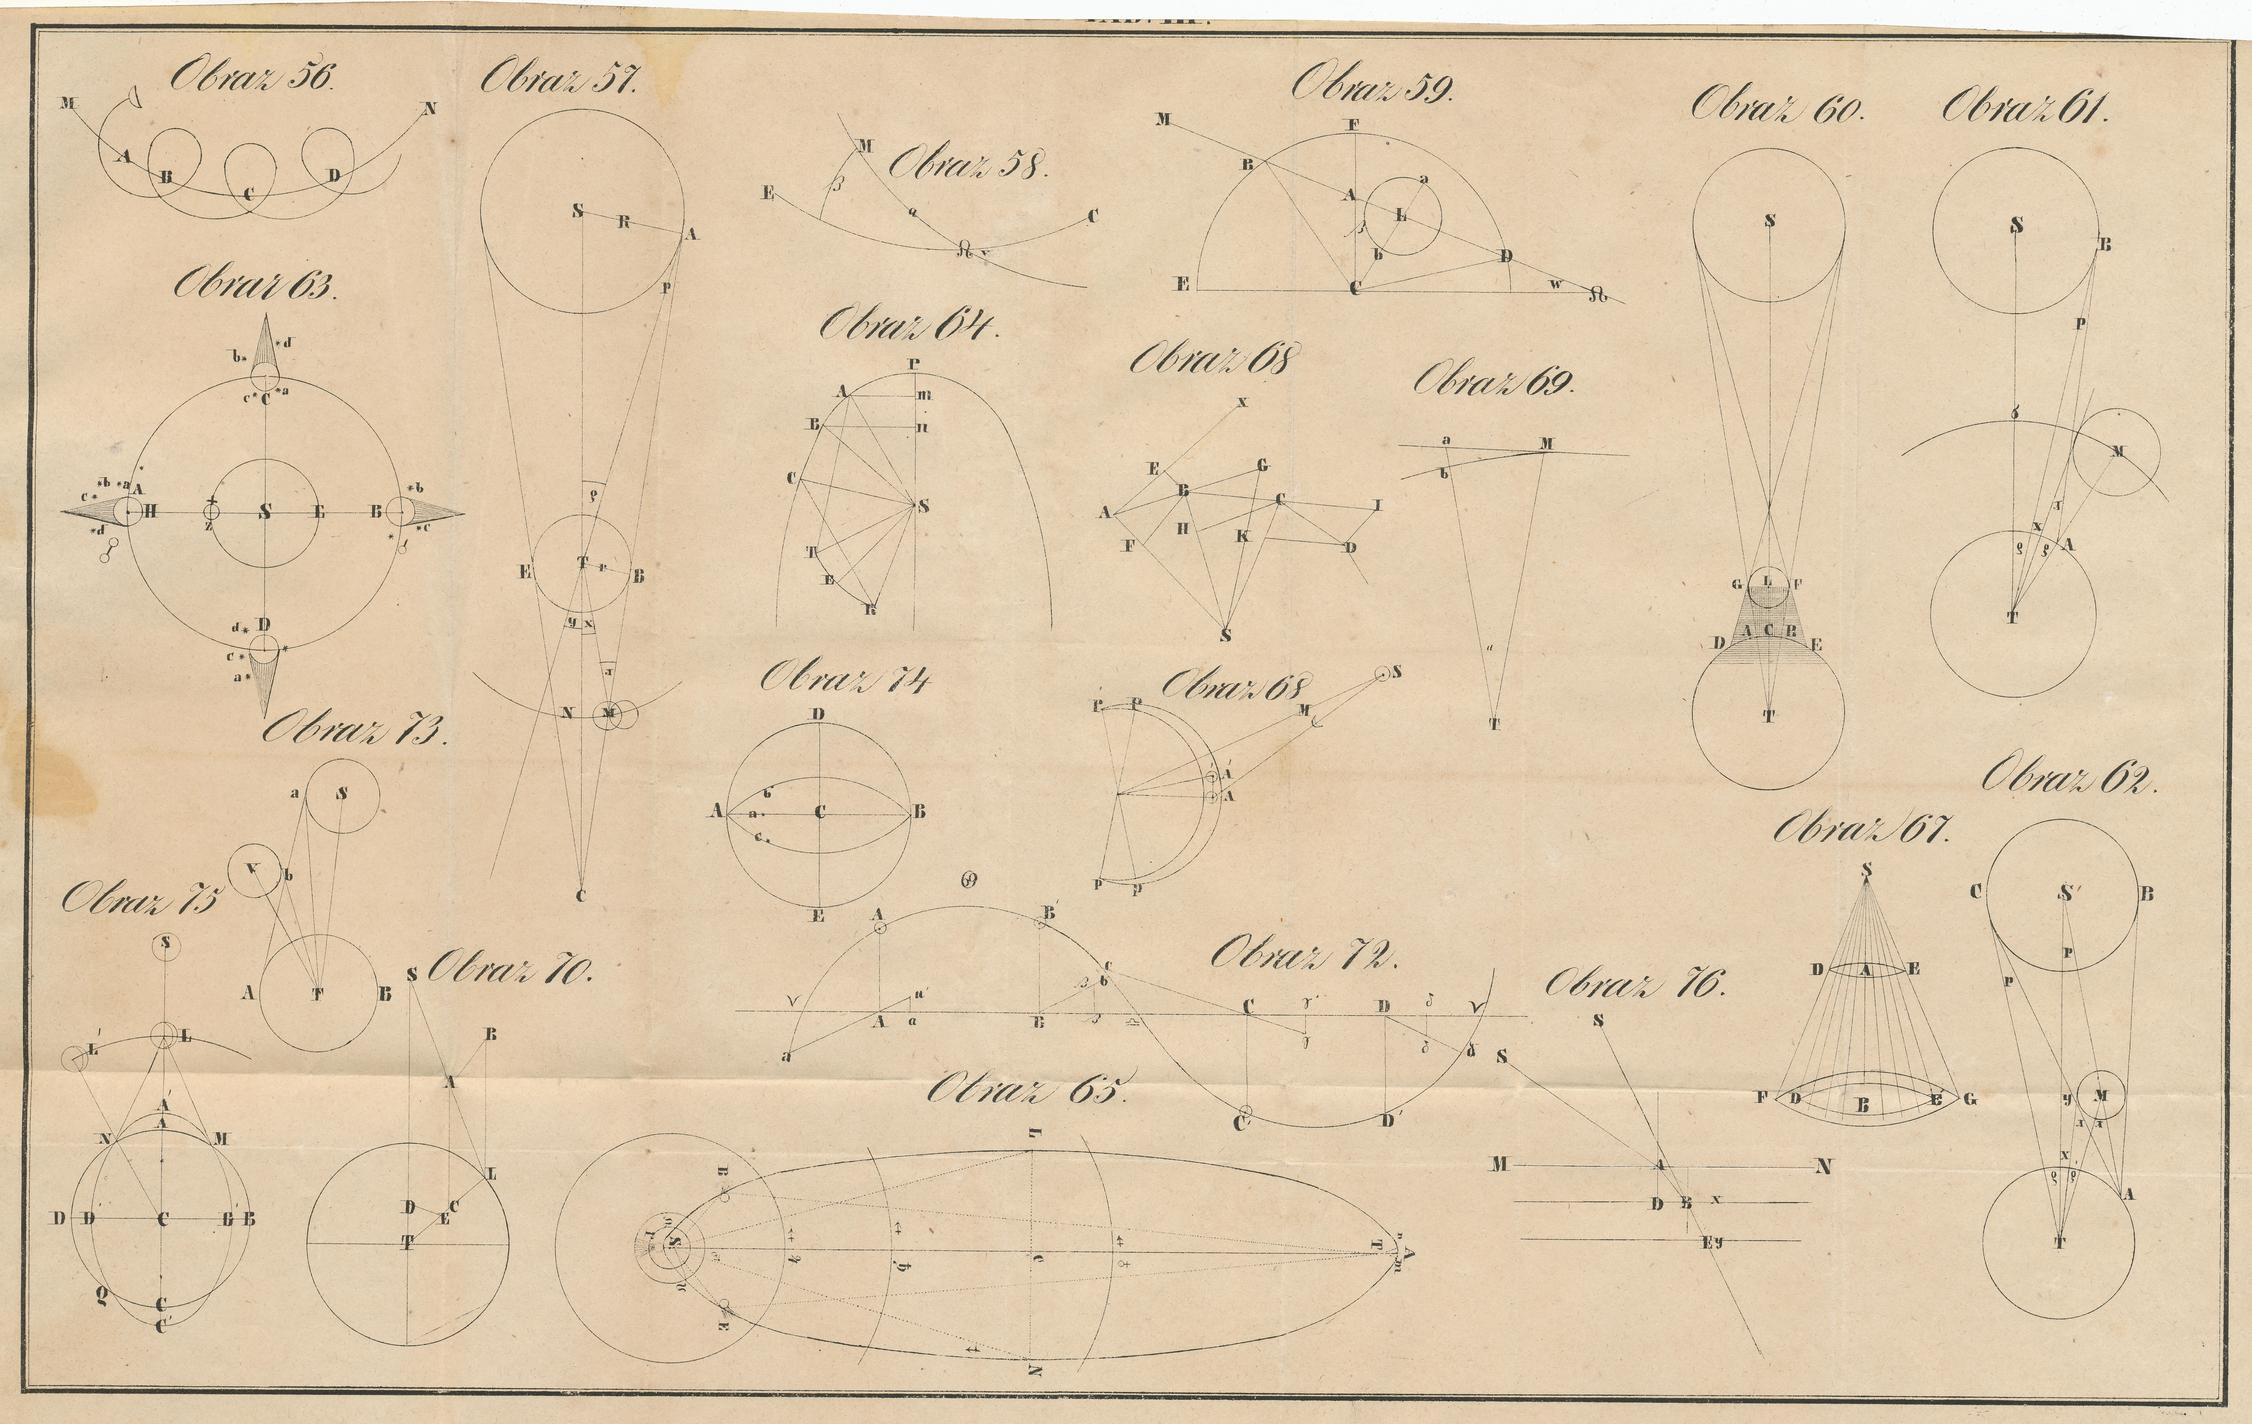 TAB. III.
Obraz 56.
M N
A B C D
Obraz 57.
S R A
P
ρ
E T r B
y x
N M
C
Obraz 58.
M
E β a C
☊
Obraz 59.
M F
B A a
L
b D
E C w ☊
Obraz 60.
S
G L F
D A C B E
T
Obraz 61.
S B
P
M
x
A
T
Obraz 63.
b d
c C a
b a A b
c H Z S E B c
d
d D
c
a
Obraz 64.
P
A m
B n
C S
T
E
R
Obraz 68
x
E G
A B C I
F H K D
S
Obraz 69.
a M
b
T
Obraz 73.
a S
V b
A T B
Obraz 74
D
A a C B
c
E
Obraz 68
P P S
M
A'
A
P P
Obraz 62.
C S B
P
P
y M
x
A
T
Obraz 67.
S
D A E
F D B E G
Obraz 75
S
L' L
A'
A
N M
D D' C B' B
Q C
C'
Obraz 70.
S
B
A
L
D C
E
T
Obraz 72.
A B'
C
A a B C D
a
C' D'
Obraz 76.
S
S
M A N
D B x
E y
Obraz 65.
L
S c T A
E
N